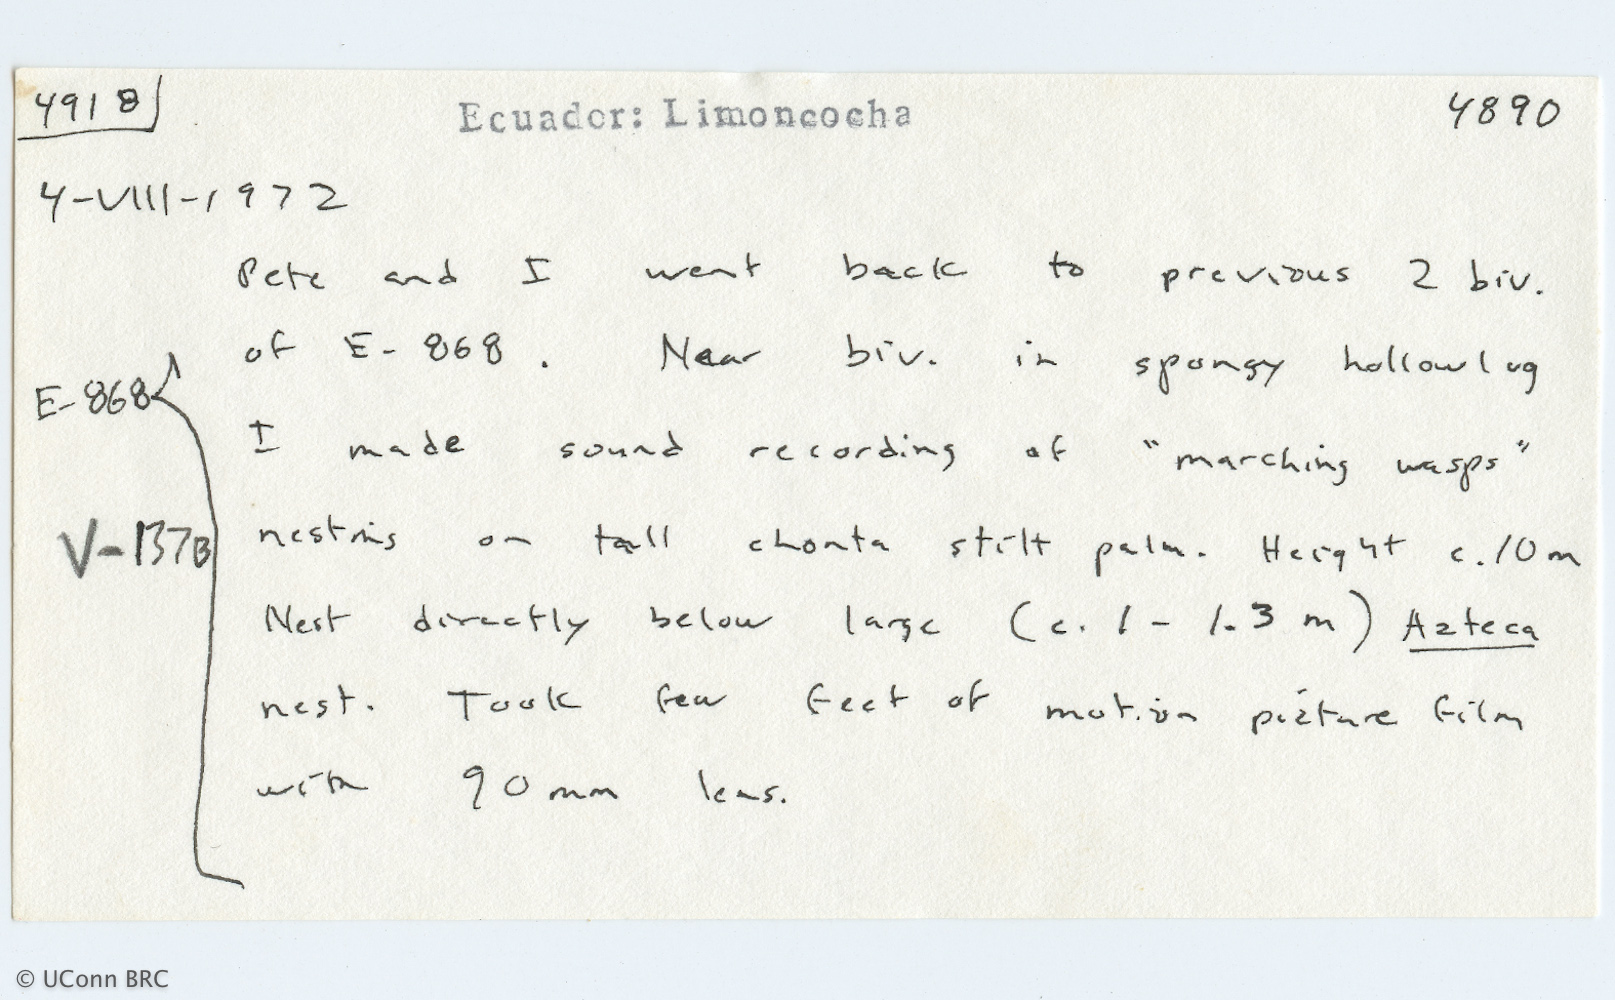 4918 Ecuador: Limoncocha 4890
4-VIII-1972
Pete and I went back to previous 2 biv.
of E-868. Near biv. in spongy hollow log
E-868
I made sound recording of "marching wasps"
V-137B
nesting on tall chonta stilt palm. Height c. 10 m
Nest directly below large (c. 1 - 1.3 m) Azteca
nest. Took few feet of motion picture film
with 90 mm lens.
© UConn BRC